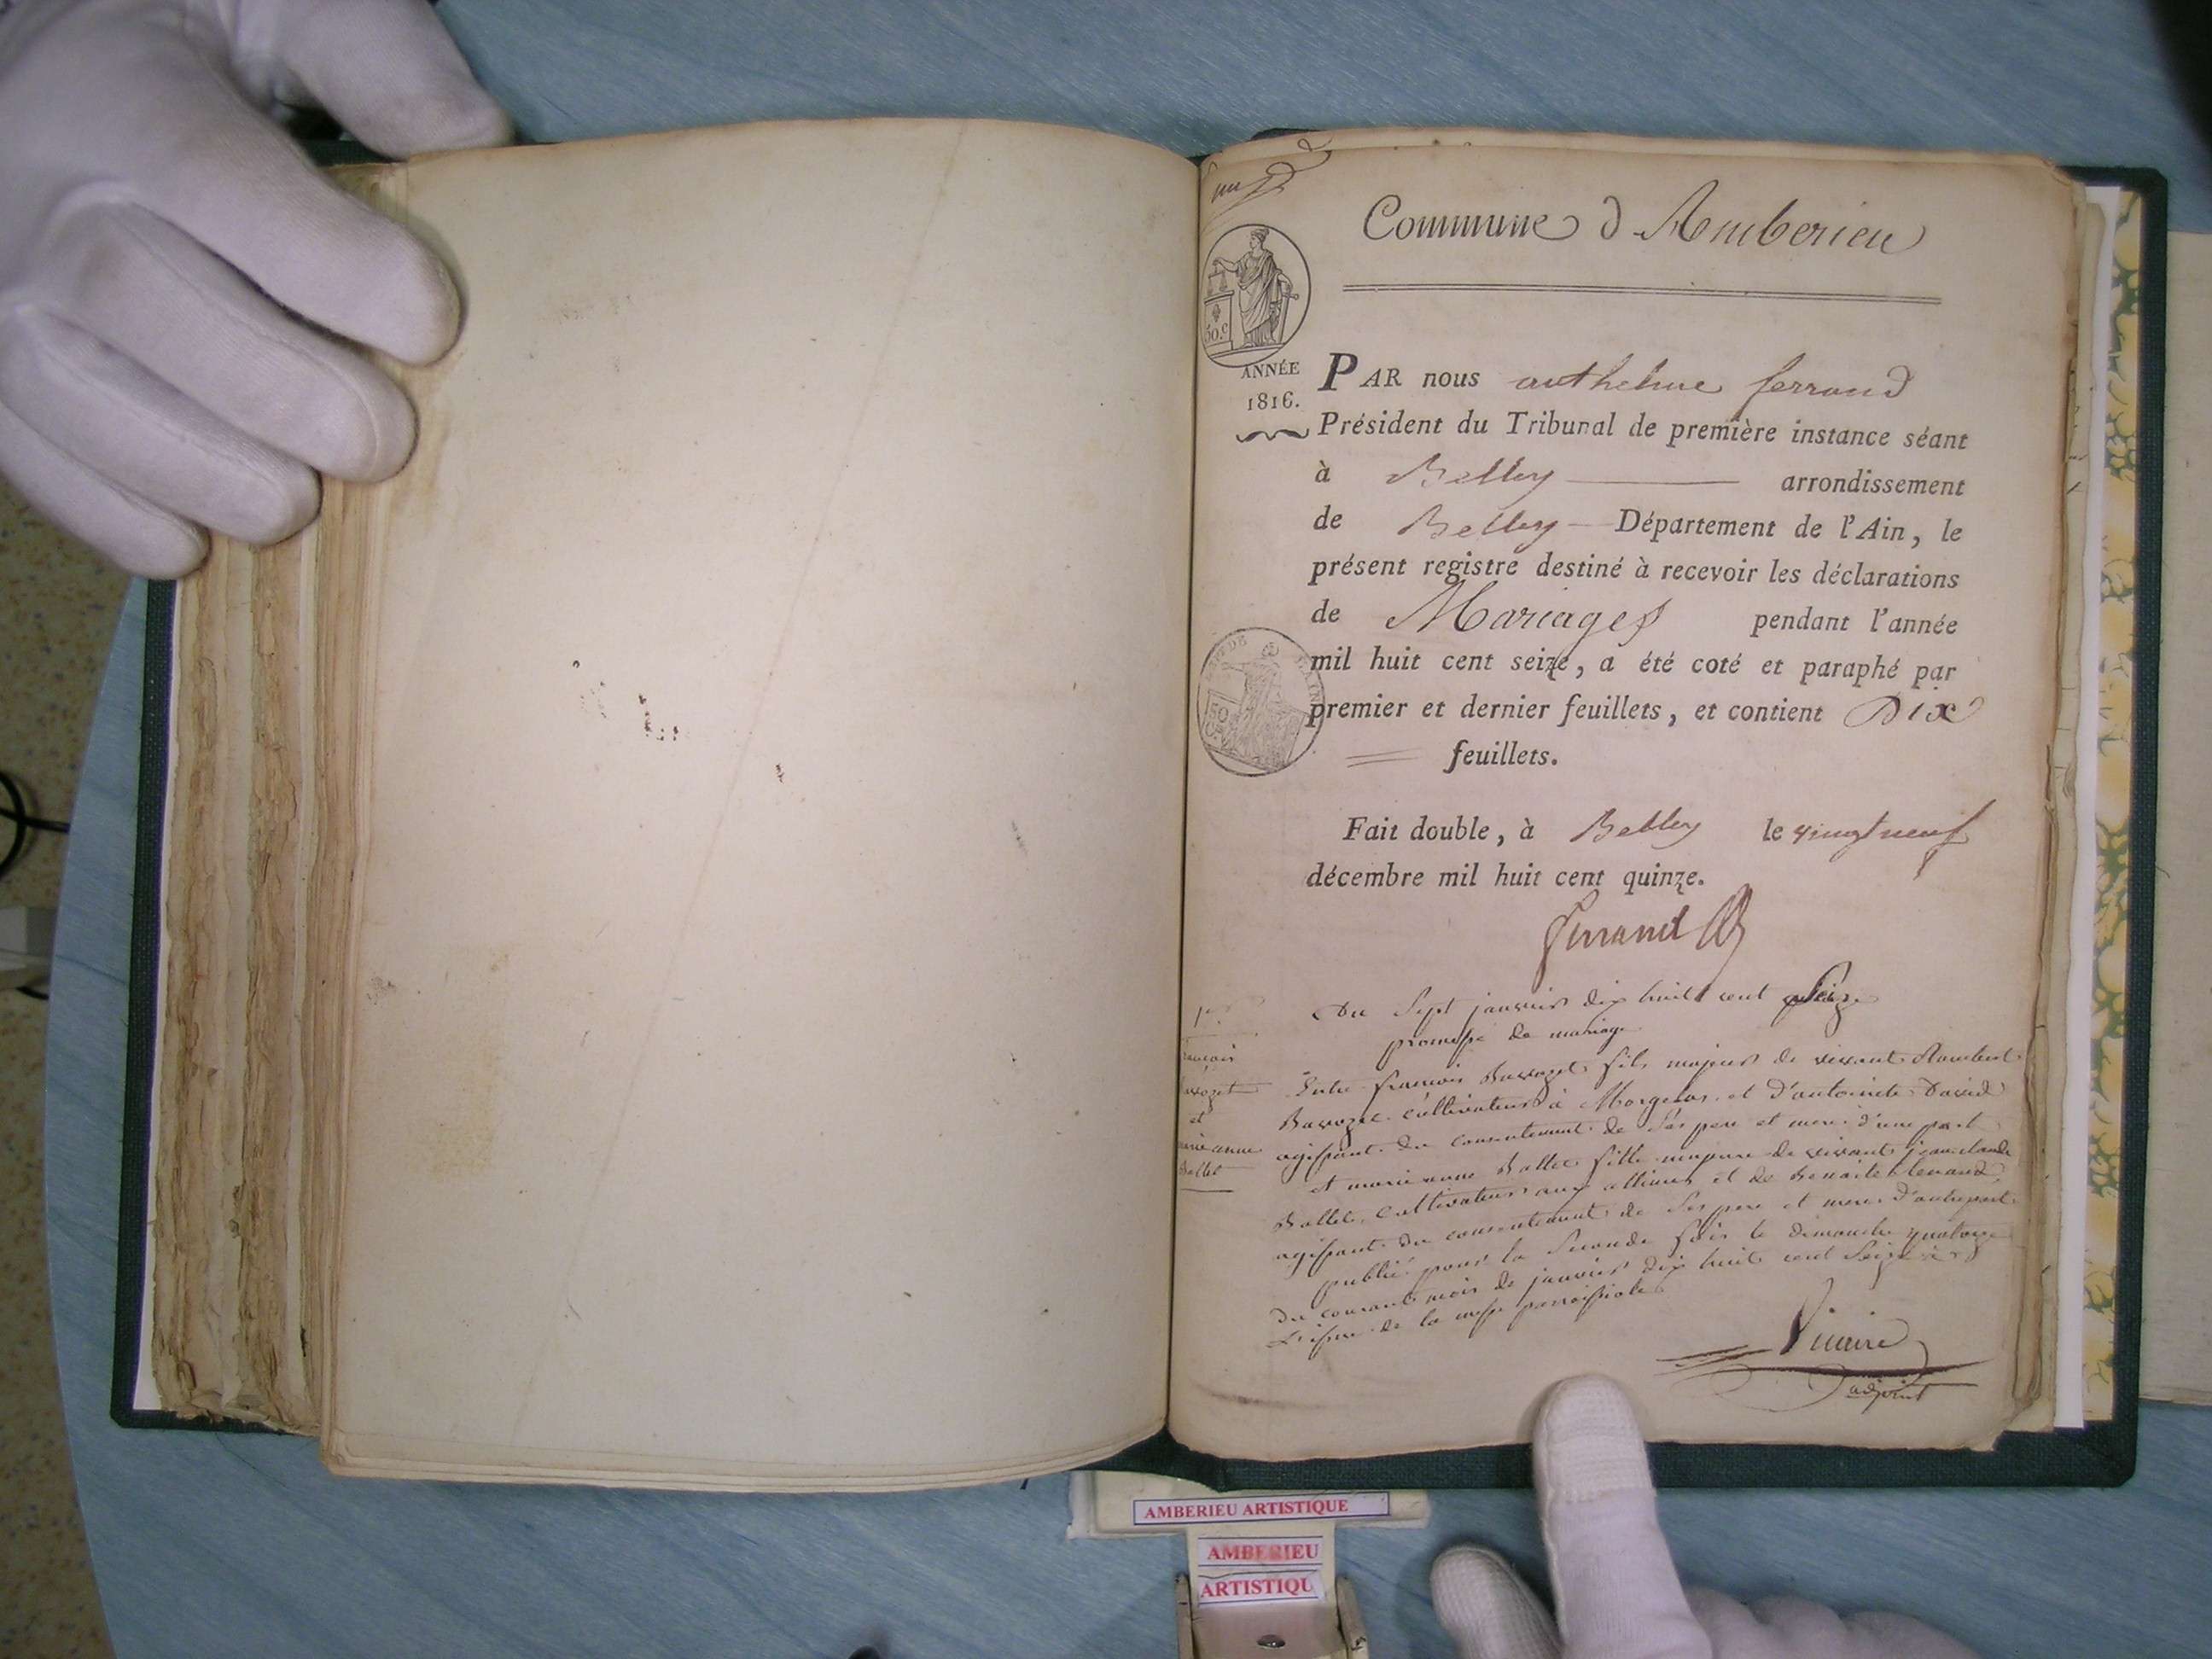 Commune d'Amberieu
50.c
ANNÉE
1816.
PAR nous anthelme ferrand
Président du Tribunal de première instance séant
à Belley arrondissement
de Belley Département de l'Ain, le
présent registre destiné à recevoir les déclarations
de Mariages pendant l'année
mil huit cent seize, a été coté et paraphé par
premier et dernier feuillets, et contient Dix
feuillets.
Fait double, à Belley le vingt neuf
décembre mil huit cent quinze.
Ferrand
Du Sept janvier dix huit cent Seize
promesse de mariage
Entre francois Bavozet fils majeur de vivant Rambert
Bavozet cultivateur à Morgelas et d'antoinete David
agissant du consentement de Ses pere et mere d'une part
et marie anne Ballet fille majeure de vivant jean claude
Ballet, Cultivateur aux allimes et de Benoite
agissant du consentement de Ses pere et mere d'autre part
publié pour la Seconde fois le dimanche quatorze
du courant mois de janvier dix huit cent Seize à
L'issue de la messe parroissiale
adjoint
1er
francois
Bavozet
et
marie anne
Ballet
AMBERIEU ARTISTIQUE
AMBERIEU
ARTISTIQU